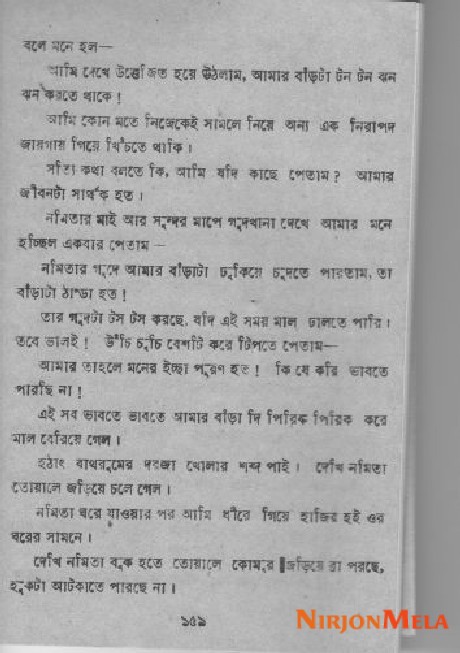 বলে মনে হল—
আমি দেখে উত্তেজিত হয়ে উঠলাম, আমার বাঁড়াটা টন টন ঝন
ঝন করতে থাকে !
আমি কোন মতে নিজেকেই সামলে নিয়ে অন্য এক নিরাপদ
জায়গায় গিয়ে খিঁচতে থাকি ।
সত্যি কথা বলতে কি, আমি যদি কাছে পেতাম ? আমার
জীবনটা সার্থক হত ।
নমিতার মাই আর সুন্দর মাপে গুদখানা দেখে আমার মনে
হচ্ছিল একবার পেতাম—
নমিতার গুদে আমার বাঁড়াটা ঢুকিয়ে চুদতে পারতাম, তা
বাঁড়াটা ঠাণ্ডা হত !
তার গুদটা টস টস করছে, যদি এই সময় মাল ঢালতে পারি !
তবে ভালই ! উঁচি চুচি বেশটি করে টিপতে পেতাম—
আমার তাহলে মনের ইচ্ছা পূরণ হত ! কি যে করি ভাবতে
পারছি না !
এই সব ভাবতে ভাবতে আমার বাঁড়া দি পিরিক পিরিক করে
মাল বেরিয়ে গেল ।
হঠাৎ বাথরুমের দরজা খোলার শব্দ পাই । দেখি নমিতা
তোয়ালে জড়িয়ে চলে গেল ।
নমিতা ঘরে যাওয়ার পর আমি ধীরে গিয়ে হাজির হই ওর
ঘরের সামনে ।
দেখি নমিতা বুক হতে তোয়ালে কোমরে জড়িয়ে ব্রা পরছে,
হুকটা আটকাতে পারছে না ।
১৫৯
NIRJONMELA